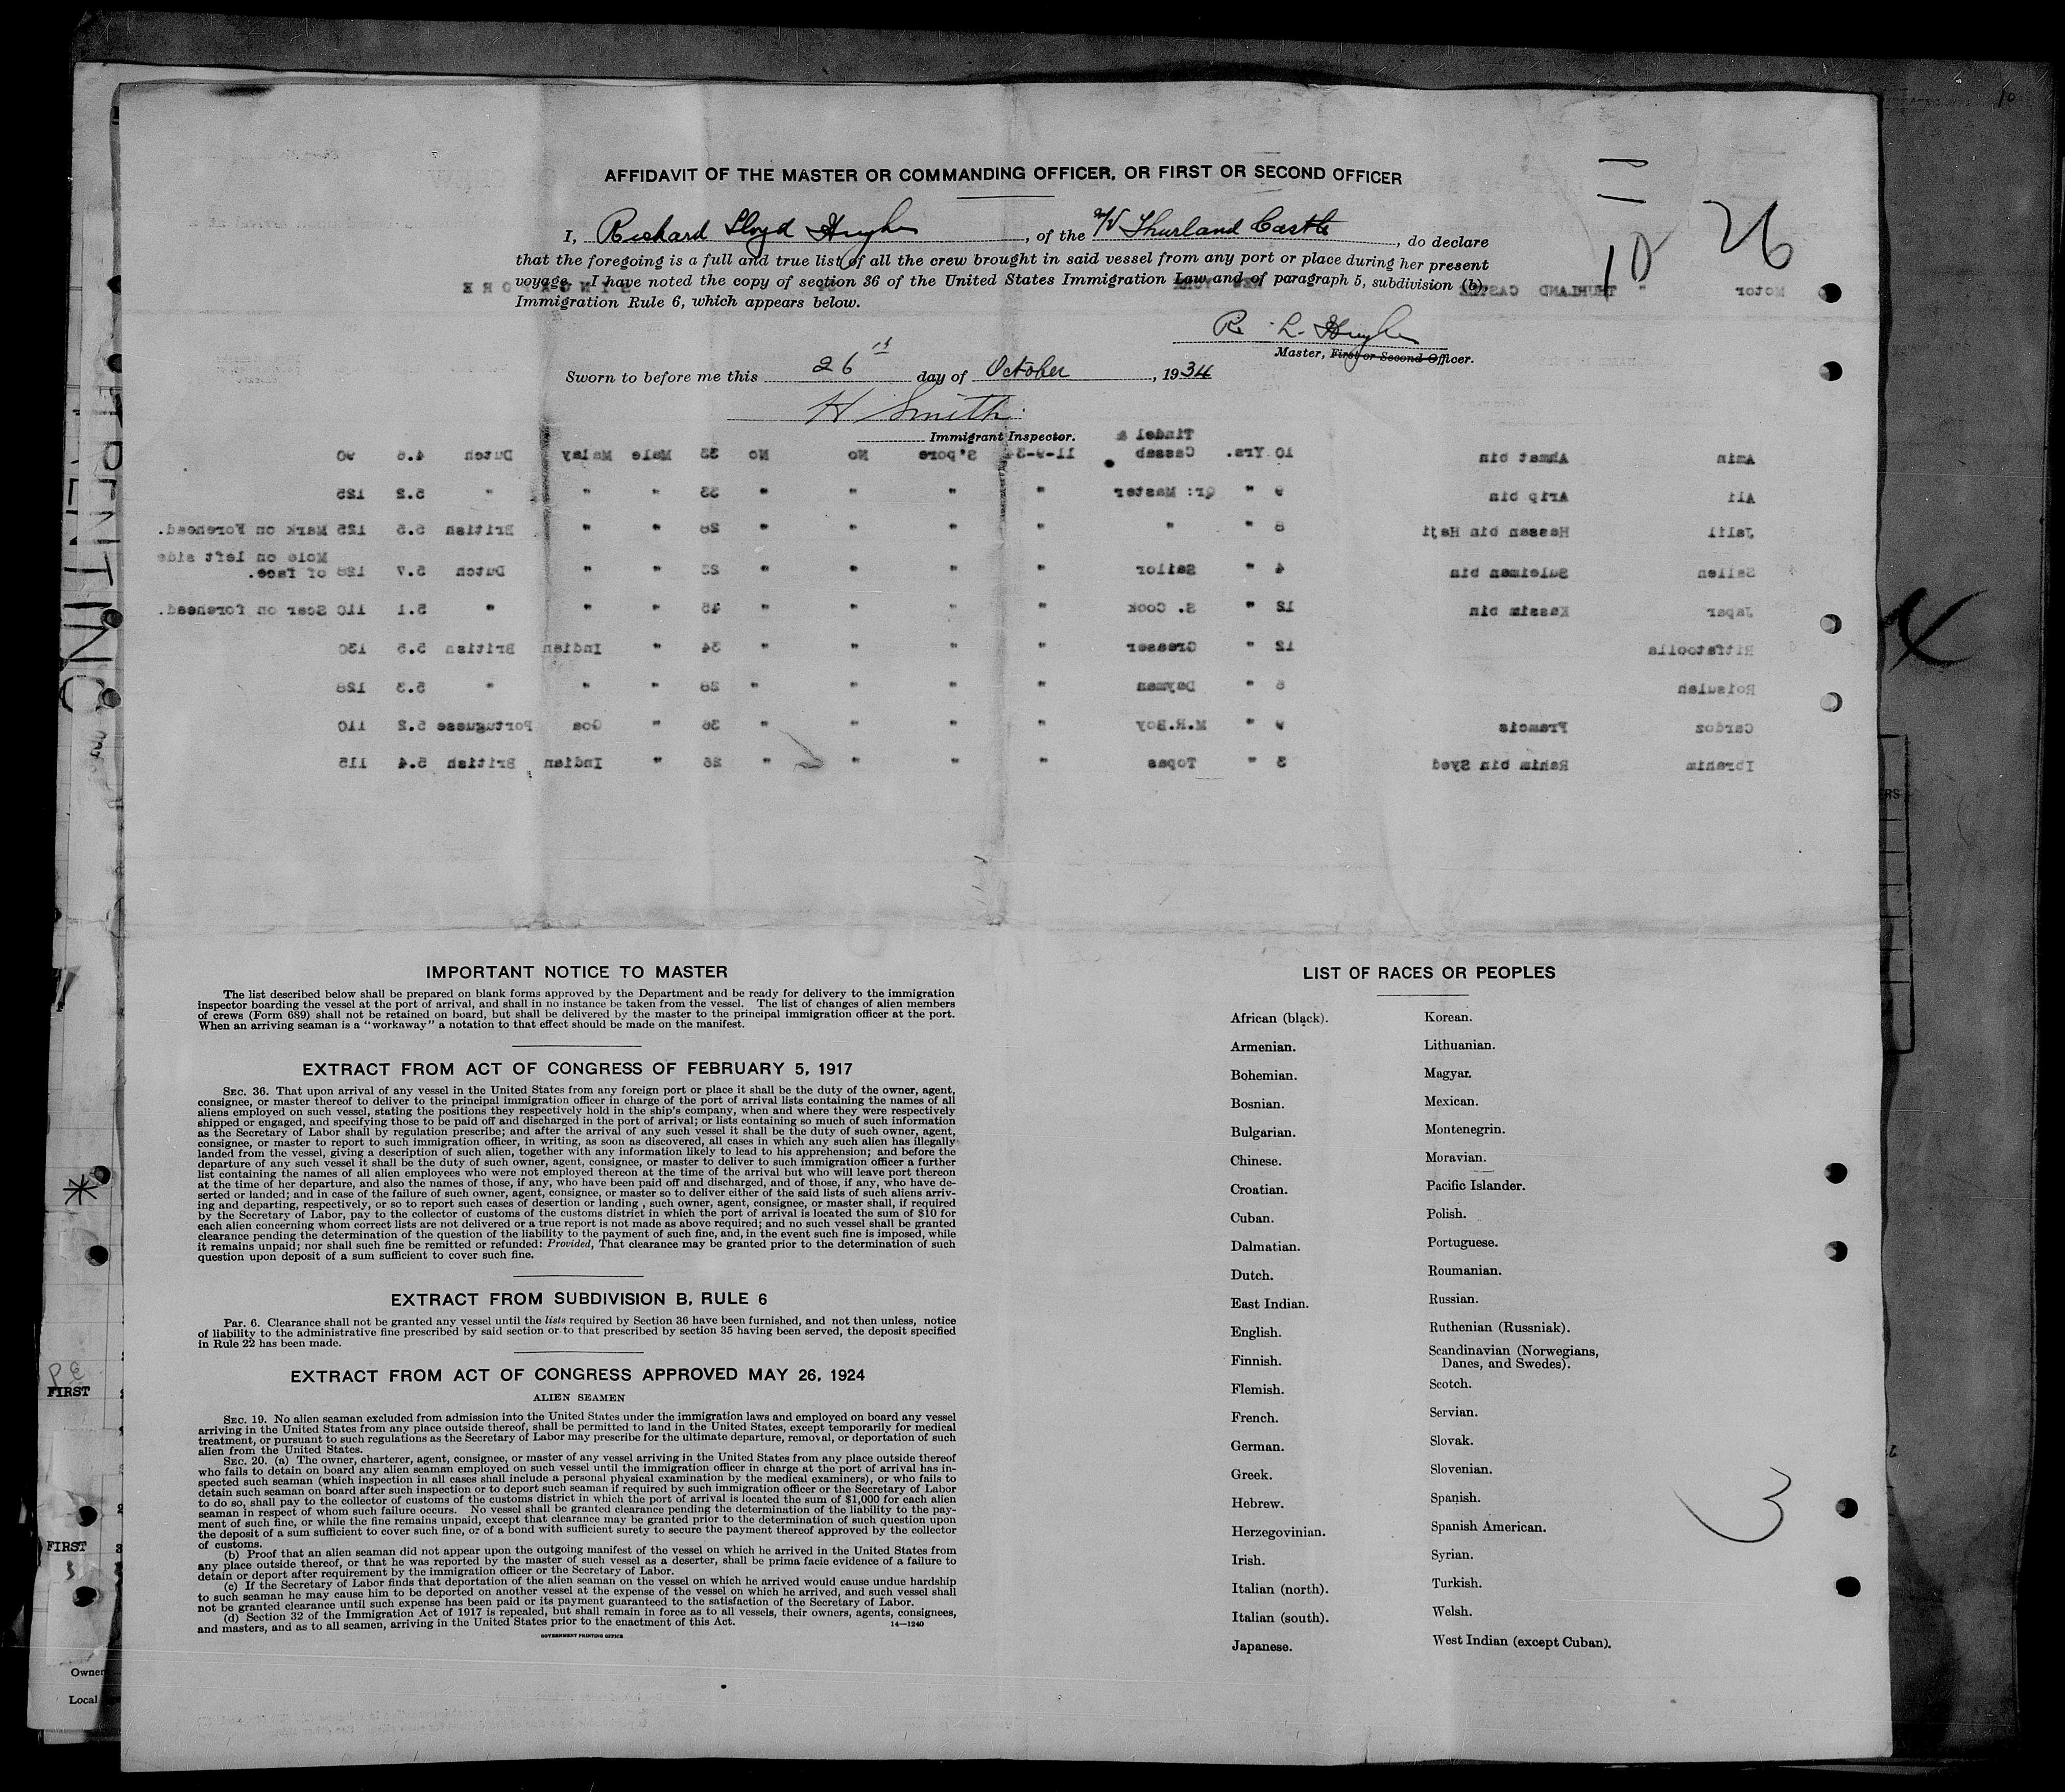 AFFIDAVIT OF THE MASTER OR COMMANDING OFFICER, OR FIRST OR SECOND OFFICER
I, Richard Lloyd Hughes, of the M/V Thurland Castle, do declare
that the foregoing is a full and true list of all the crew brought in said vessel from any port or place during her present
voyage. I have noted the copy of section 36 of the United States Immigration Law and of paragraph 5, subdivision (b),
Immigration Rule 6, which appears below.
10 26
Motor " THURLAND CASTLE NEW YORK SINGAPORE
R. L. Hughes
Master, First or Second Officer.
Sworn to before me this 26th day of October, 1934
H Smith
Immigrant Inspector.
Tindel &
Amin Ahmat bin 10 Yrs. Cassab 11-9-34 S'pore No No 33 Male Malay Dutch 4.6 90
Ali Arip bin 9 " Qr: Master " " " " 33 " " " 5.2 125
Jalil Hassan bin Haji 8 " " " " " " 28 " " British 5.5 125 Mark on Forehead.
Mole on left side
Sallen Suleiman bin 4 " Sailor " " " " 23 " " Dutch 5.7 128 of face.
Japar Kassim bin 12 " S. Cook " " " " 45 " " " 5.1 110 Scar on forehead.
Riffatoolla 12 " Greaser " " " " 34 " Indian British 5.5 130
6 " Dayman " " " " 28 " " " 5.3 128
Cardoz Francis 9 " M.R.Boy " " " " 36 " Goa Portuguese 5.2 110
Ibrahim Rahim bin Syed 3 " Topas " " " " 26 " Indian British 5.4 115
IMPORTANT NOTICE TO MASTER
The list described below shall be prepared on blank forms approved by the Department and be ready for delivery to the immigration
inspector boarding the vessel at the port of arrival, and shall in no instance be taken from the vessel. The list of changes of alien members
of crews (Form 689) shall not be retained on board, but shall be delivered by the master to the principal immigration officer at the port.
When an arriving seaman is a "workaway" a notation to that effect should be made on the manifest.
EXTRACT FROM ACT OF CONGRESS OF FEBRUARY 5, 1917
SEC. 36. That upon arrival of any vessel in the United States from any foreign port or place it shall be the duty of the owner, agent,
consignee, or master thereof to deliver to the principal immigration officer in charge of the port of arrival lists containing the names of all
aliens employed on such vessel, stating the positions they respectively hold in the ship's company, when and where they were respectively
shipped or engaged, and specifying those to be paid off and discharged in the port of arrival; or lists containing so much of such information
as the Secretary of Labor shall by regulation prescribe; and after the arrival of any such vessel it shall be the duty of such owner, agent,
consignee, or master to report to such immigration officer, in writing, as soon as discovered, all cases in which any such alien has illegally
landed from the vessel, giving a description of such alien, together with any information likely to lead to his apprehension; and before the
departure of any such vessel it shall be the duty of such owner, agent, consignee, or master to deliver to such immigration officer a further
list containing the names of all alien employees who were not employed thereon at the time of the arrival but who will leave port thereon
at the time of her departure, and also the names of those, if any, who have been paid off and discharged, and of those, if any, who have de-
serted or landed; and in case of the failure of such owner, agent, consignee, or master so to deliver either of the said lists of such aliens arriv-
ing and departing, respectively, or so to report such cases of desertion or landing , such owner, agent, consignee, or master shall, if required
by the Secretary of Labor, pay to the collector of customs of the customs district in which the port of arrival is located the sum of $10 for
each alien concerning whom correct lists are not delivered or a true report is not made as above required; and no such vessel shall be granted
clearance pending the determination of the question of the liability to the payment of such fine, and, in the event such fine is imposed, while
it remains unpaid; nor shall such fine be remitted or refunded: Provided, That clearance may be granted prior to the determination of such
question upon deposit of a sum sufficient to cover such fine.
EXTRACT FROM SUBDIVISION B, RULE 6
Par. 6. Clearance shall not be granted any vessel until the lists required by Section 36 have been furnished, and not then unless, notice
of liability to the administrative fine prescribed by said section or to that prescribed by section 35 having been served, the deposit specified
in Rule 22 has been made.
EXTRACT FROM ACT OF CONGRESS APPROVED MAY 26, 1924
ALIEN SEAMEN
SEC. 19. No alien seaman excluded from admission into the United States under the immigration laws and employed on board any vessel
arriving in the United States from any place outside thereof, shall be permitted to land in the United States, except temporarily for medical
treatment, or pursuant to such regulations as the Secretary of Labor may prescribe for the ultimate departure, removal, or deportation of such
alien from the United States.
SEC. 20. (a) The owner, charterer, agent, consignee, or master of any vessel arriving in the United States from any place outside thereof
who fails to detain on board any alien seaman employed on such vessel until the immigration officer in charge at the port of arrival has in-
spected such seaman (which inspection in all cases shall include a personal physical examination by the medical examiners), or who fails to
detain such seaman on board after such inspection or to deport such seaman if required by such immigration officer or the Secretary of Labor
to do so, shall pay to the collector of customs of the customs district in which the port of arrival is located the sum of $1,000 for each alien
seaman in respect of whom such failure occurs. No vessel shall be granted clearance pending the determination of the liability to the pay-
ment of such fine, or while the fine remains unpaid, except that clearance may be granted prior to the determination of such question upon
the deposit of a sum sufficient to cover such fine, or of a bond with sufficient surety to secure the payment thereof approved by the collector
of customs.
(b) Proof that an alien seaman did not appear upon the outgoing manifest of the vessel on which he arrived in the United States from
any place outside thereof, or that he was reported by the master of such vessel as a deserter, shall be prima facie evidence of a failure to
detain or deport after requirement by the immigration officer or the Secretary of Labor.
(c) If the Secretary of Labor finds that deportation of the alien seaman on the vessel on which he arrived would cause undue hardship
to such seaman he may cause him to be deported on another vessel at the expense of the vessel on which he arrived, and such vessel shall
not be granted clearance until such expense has been paid or its payment guaranteed to the satisfaction of the Secretary of Labor.
(d) Section 32 of the Immigration Act of 1917 is repealed, but shall remain in force as to all vessels, their owners, agents, consignees,
and masters, and as to all seamen, arriving in the United States prior to the enactment of this Act.
14—1240
GOVERNMENT PRINTING OFFICE
LIST OF RACES OR PEOPLES
African (black). Korean.
Armenian. Lithuanian.
Bohemian. Magyar.
Bosnian. Mexican.
Bulgarian. Montenegrin.
Chinese. Moravian.
Croatian. Pacific Islander.
Cuban. Polish.
Dalmatian. Portuguese.
Dutch. Roumanian.
East Indian. Russian.
English. Ruthenian (Russniak).
Finnish. Scandinavian (Norwegians,
Danes, and Swedes).
Flemish. Scotch.
French. Servian.
German. Slovak.
Greek. Slovenian.
Hebrew. Spanish.
Herzegovinian. Spanish American.
Irish. Syrian.
Italian (north). Turkish.
Italian (south). Welsh.
Japanese. West Indian (except Cuban).
3
FIRST
FIRST
Owner
Local